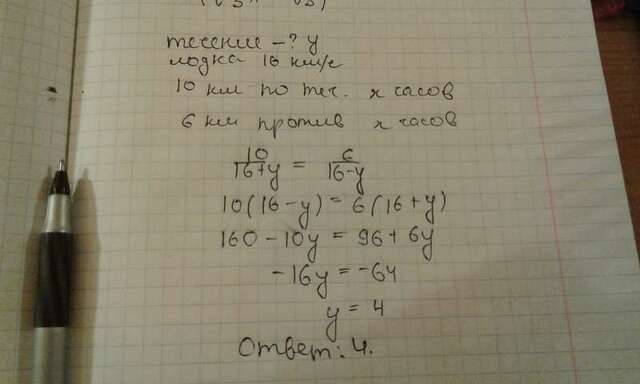 течение - ? y
лодка 16 км/с
10 км по теч. x часов
6 км против x часов
10/16+y = 6/16-y
10(16-y) = 6(16+y)
160-10y = 96+6y
-16y = -64
y = 4
Ответ: 4.